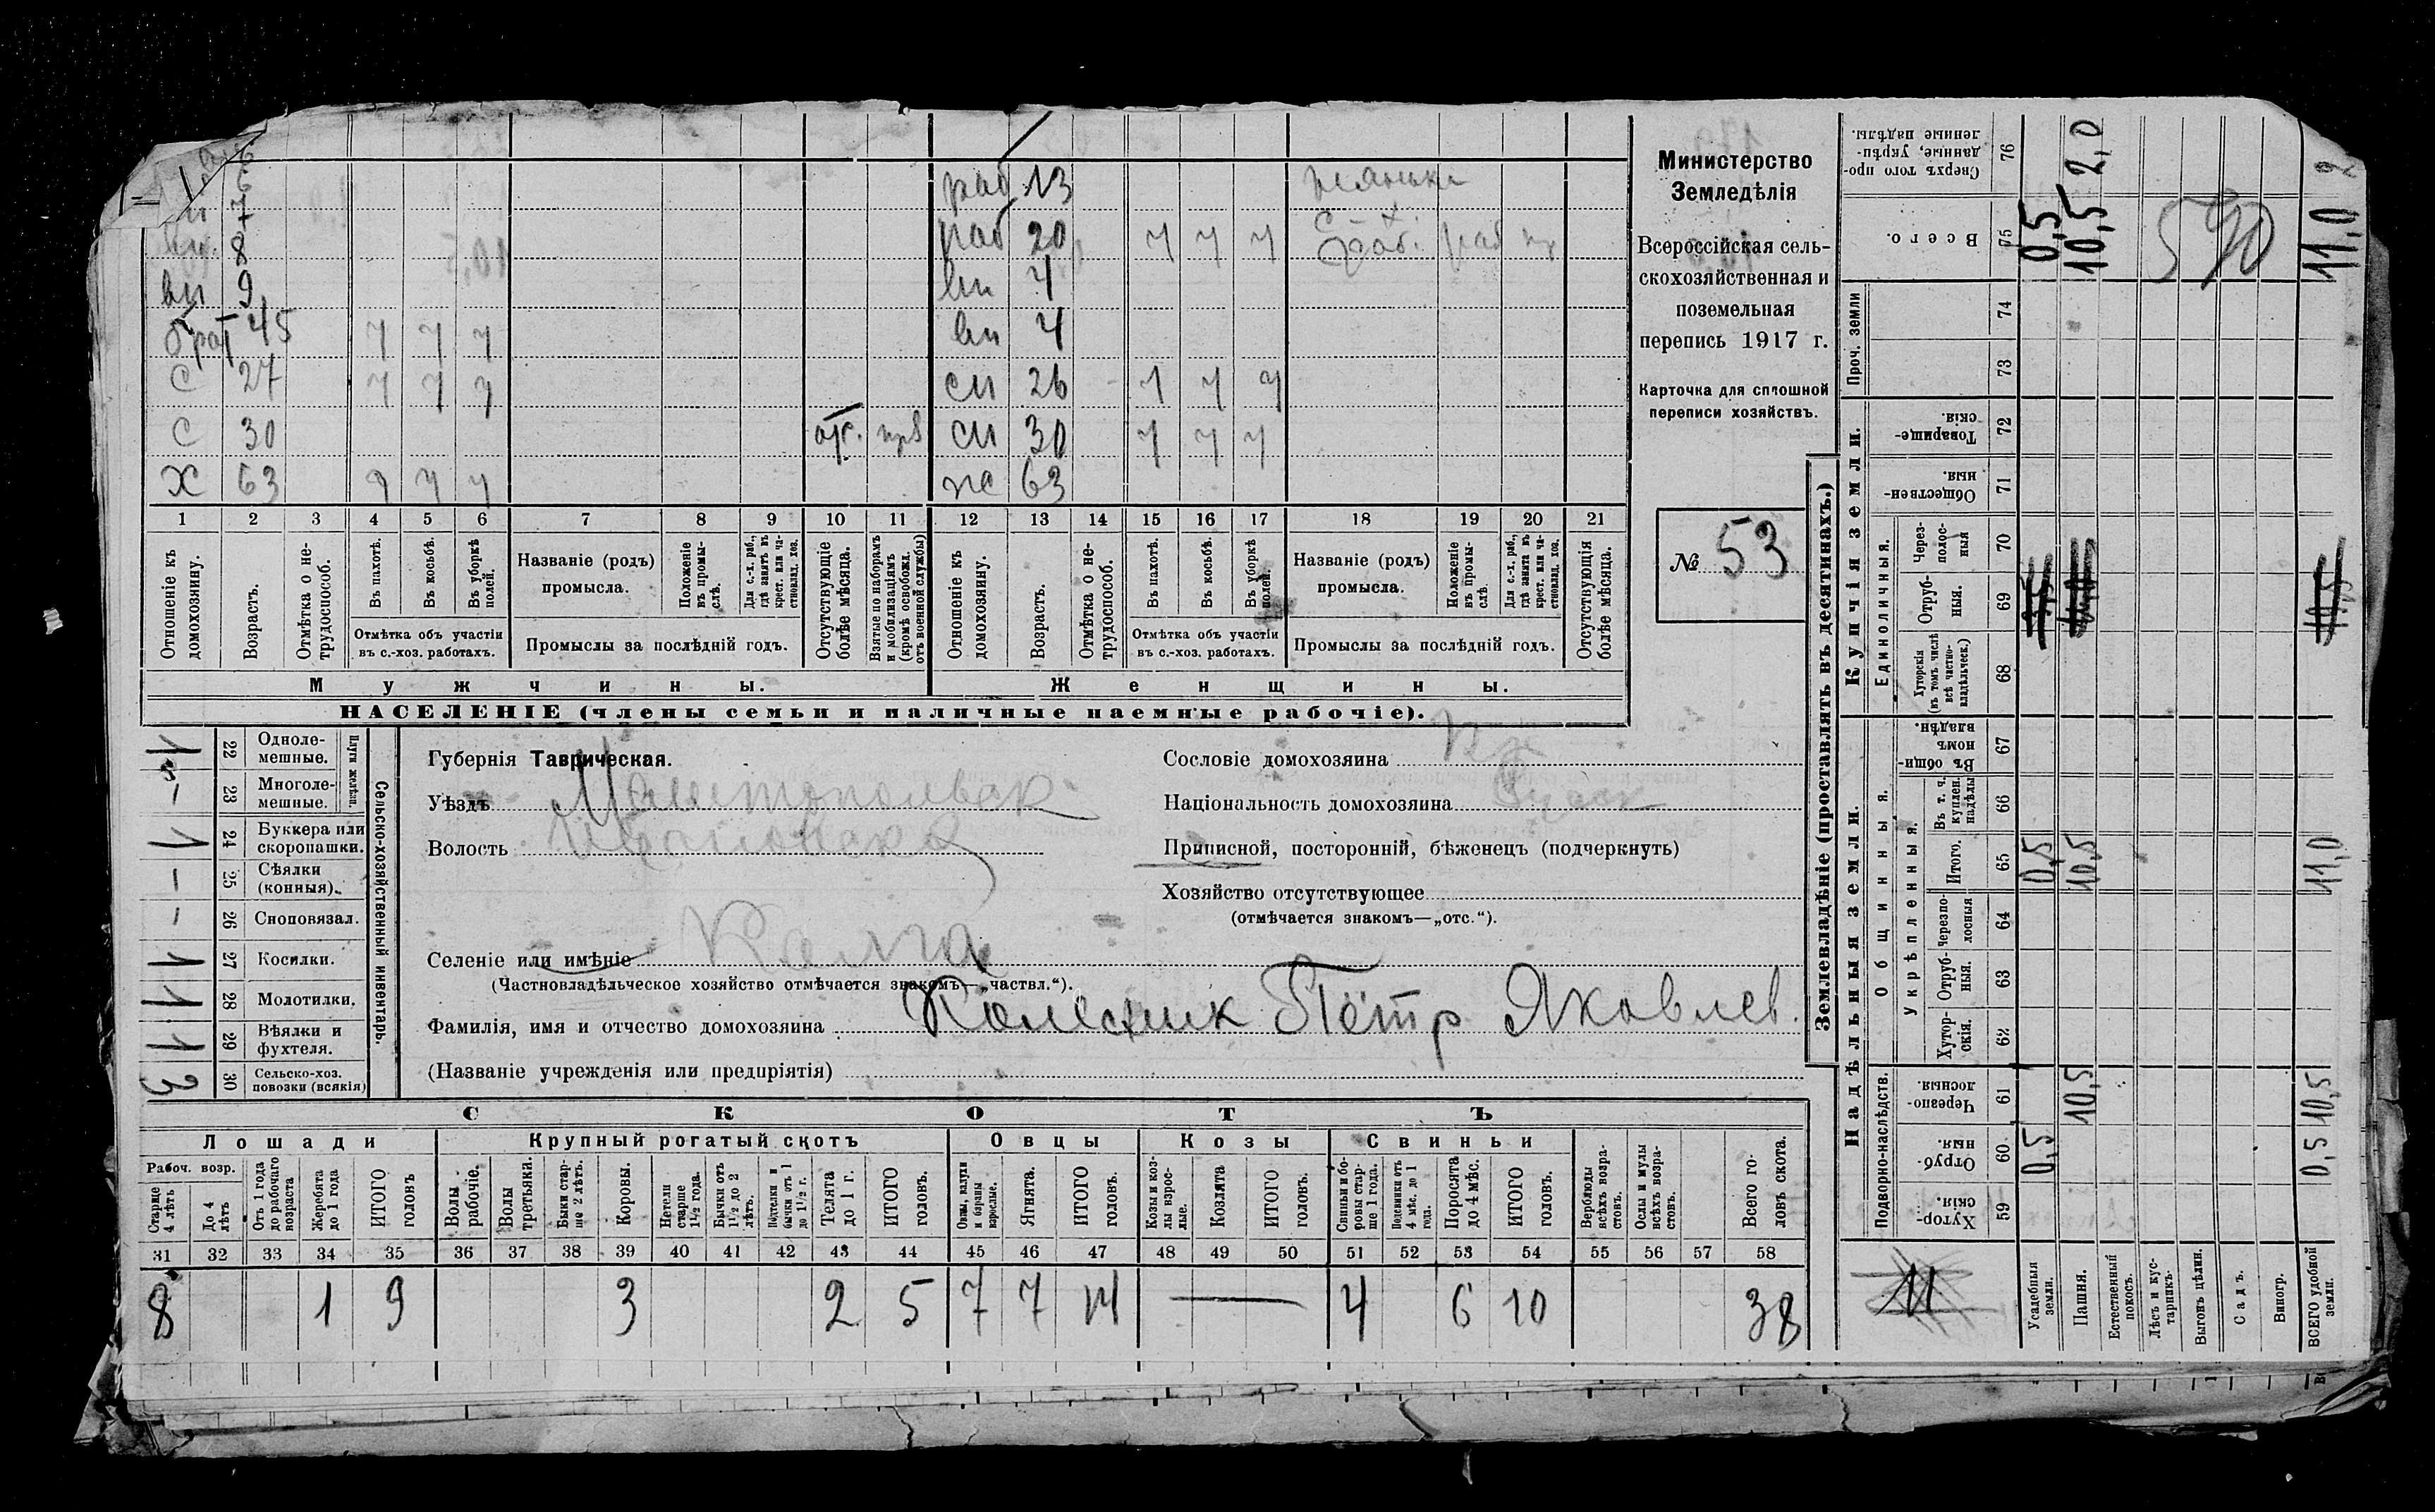 Министерство
Земледѣлія
Всероссійская сель-
скохозяйственная и
поземельная
перепись 1917 г.
Карточка для сплошной
переписи хозяйствъ.
№ 53
раб 13
раб 20 ч ч ч раб.
вн 9 вн 4
брат 45 ч ч ч вн 4
с 27 ч ч ч сн 26 ч ч ч
с 30 отс. сн 30 ч ч ч
х 63 ч ч ч же 63
1 2 3 4 5 6 7 8 9 10 11 12 13 14 15 16 17 18 19 20 21
Отношеніе къ домохозяину.
Возрастъ.
Отмѣтка о не-трудоспособ.
Въ пахотѣ.
Въ косьбѣ.
Въ уборкѣ полей.
Отмѣтка объ участіи
въ с.-хоз. работахъ.
Названіе (родъ)
промысла.
Положеніе въ промы-слѣ.
Для с.-х. раб., гдѣ занятъ въ крест. или ча-стновлад. хоз.
Промыслы за послѣдній годъ.
Отсутствующіе болѣе мѣсяца.
Взятые по наборамъ и мобилизаціямъ (кромѣ освобожд. отъ военной службы)
Отношеніе къ домохозяину.
Возрастъ.
Отмѣтка о не-трудоспособ.
Въ пахотѣ.
Въ косьбѣ.
Въ уборкѣ полей.
Отмѣтка объ участіи
въ с.-хоз. работахъ.
Названіе (родъ)
промысла.
Положеніе въ промы-слѣ.
Для с.-х. раб., гдѣ занятъ въ крест. или ча-стновлад. хоз.
Промыслы за послѣдній годъ.
Отсутствующія болѣе мѣсяца.
Мужчины. Женщины.
НАСЕЛЕНІЕ (члены семьи и наличные наемные рабочіе).
Сельско-хозяйственный инвентарь.
Плуги желѣзн.
1 22 Одноле-мешные.
– 23 Многоле-мешные.
1 24 Буккера или скоропашки.
– 25 Сѣялки (конныя).
– 26 Сноповязал.
1 27 Косилки.
1 28 Молотилки.
1 29 Вѣялки и фухтеля.
3 30 Сельско-хоз. повозки (всякія)
Губернія Таврическая.
Уѣздъ Мелитопольск
Волость
Селеніе или имѣніе
(Частновладѣльческое хозяйство отмѣчается знакомъ—„частвл.“).
Фамилія, имя и отчество домохозяина Колесник Пётр Яковлев.
(Названіе учрежденія или предпріятія)
Сословіе домохозяина
Національность домохозяина
Приписной, посторонній, бѣженецъ (подчеркнуть)
Хозяйство отсутствующее
(отмѣчается знакомъ—„отс.“).
СКОТЪ
Лошади Крупный рогатый скотъ Овцы Козы Свиньи
Рабоч. возр.
Старше 4 лѣтъ
До 4 лѣтъ
Отъ 1 года до рабочаго возраста
Жеребята до 1 года
ИТОГО головъ
Волы рабочіе.
Волы третьяки.
Быки стар-ше 2 лѣтъ.
Коровы.
Нетели старше 1½ года.
Бычки отъ 1½ до 2 лѣтъ.
Подтелки и бычки отъ 1 до 1½ г.
Телята до 1 г.
ИТОГО головъ.
Овцы, валухи и бараны взрослые.
Ягнята.
ИТОГО головъ.
Козы и коз-лы взрос-лые.
Козлята
ИТОГО головъ.
Свиньи и бо-ровы стар-ше 1 года.
Подсвинки отъ 4 мѣс. до 1 года.
Поросята до 4 мѣс.
ИТОГО головъ.
Верблюды всѣхъ возра-стовъ.
Ослы и мулы всѣхъ возра-стовъ.
Всего го-ловъ скота.
31 32 33 34 35 36 37 38 39 40 41 42 43 44 45 46 47 48 49 50 51 52 53 54 55 56 57 58
8 1 9 3 2 5 7 7 14 — 4 6 10 38
Землевладѣніе (проставлять въ десятинахъ.)
Надѣльныя земли. Купчія земли. Проч. земли
Подворно-наслѣдств.
Общинныя.
Укрѣпленныя.
Единоличныя.
Хутор-скія. 59
Отруб-ныя. 60 0,5 0,5
Черезпо-лосныя. 61 10,5 10,5
Хутор-скія. 62
Отруб-ныя. 63
Черезпо-лосныя 64
Итого. 65 0,5 10,5 11,0
Въ т. ч. куплен. надѣлы 66
Въ общи-номъ владѣн. 67
Хуторскія (въ томъ числѣ всѣ частно-владѣльческ.) 68
Отруб-ныя. 69
Через-полос-ныя 70
Обществен-ныя. 71
Товарище-скія. 72
73
74
Всего. 75 0,5 10,5 590 11,0
Сверхъ того про-данные, укрѣп-ленные надѣлы. 76 2,0 2
11
Усадебныя земли.
Пашня.
Естественный покосъ.
Лѣсъ и кус-тарникъ.
Выгонъ цѣлин.
Садъ.
Виногр.
ВСЕГО удобной земли.